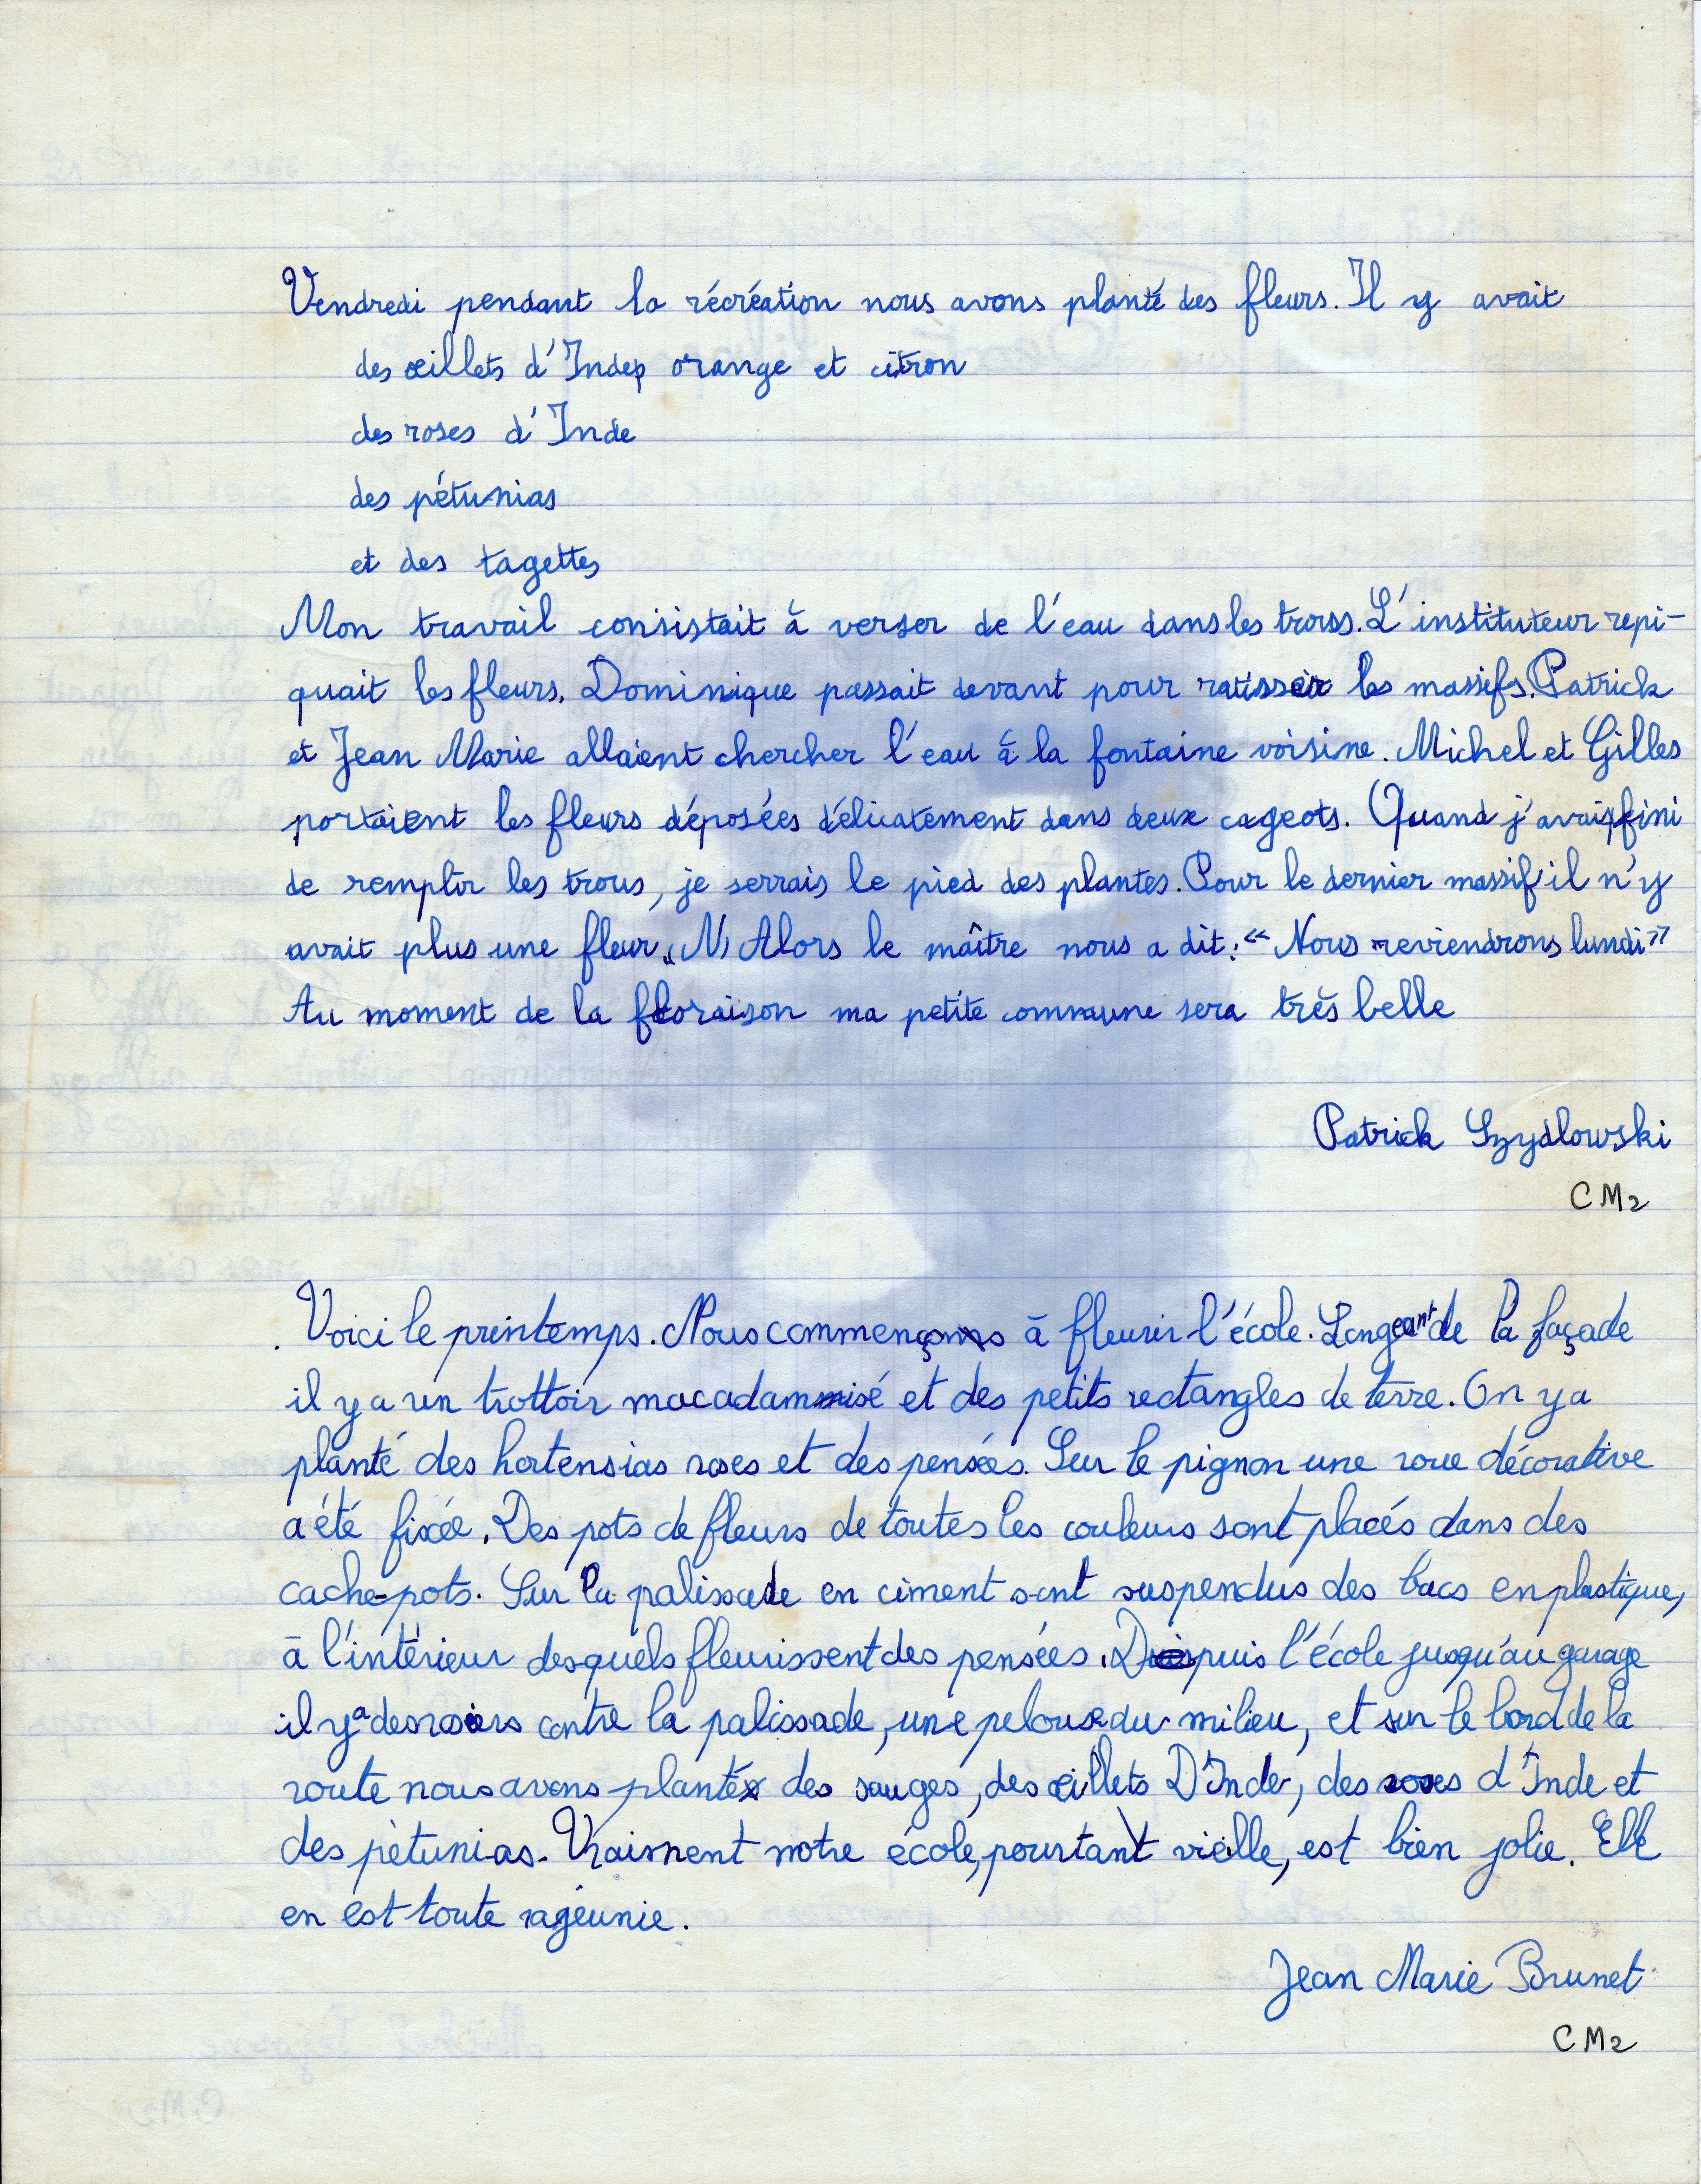 Vendredi pendant la récréation nous avons planté des fleurs. Il y avait
des œillets d'Inde orange et citron
des roses d'Inde
des pétunias
et des tagettes
Mon travail consistait à verser de l'eau dans les trous. L'instituteur repi-
quait les fleurs. Dominique passait devant pour ratisser les massifs. Patrick
et Jean Marie allaient chercher l'eau à la fontaine voisine. Michel et Gilles
portaient les fleurs déposées délicatement dans deux cageots. Quand j'avais fini
de remplir les trous, je serrais le pied des plantes. Pour le dernier massif il n'y
avait plus une fleur. Alors le maître nous a dit : « Nous reviendrons lundi »
Au moment de la floraison ma petite commune sera très belle
Patrick Szydlowski
CM2
Voici le printemps. Nous commençons à fleurir l'école. Longeant de la façade
il y a un trottoir macadamisé et des petits rectangles de terre. On y a
planté des hortensias roses et des pensées. Sur le pignon une roue décorative
a été fixée. Des pots de fleurs de toutes les couleurs sont placés dans des
cache-pots. Sur la palissade en ciment sont suspendus des bacs en plastique,
à l'intérieur desquels fleurissent des pensées. Depuis l'école jusqu'au garage
il y a des rosiers contre la palissade, une pelouse au milieu, et sur le bord de la
route nous avons planté des sauges, des œillets D'Inde, des roses d'Inde et
des pètunias. Vraiment notre école, pourtant vieille, est bien jolie. Elle
en est toute rageunie.
Jean Marie Brunet
CM2